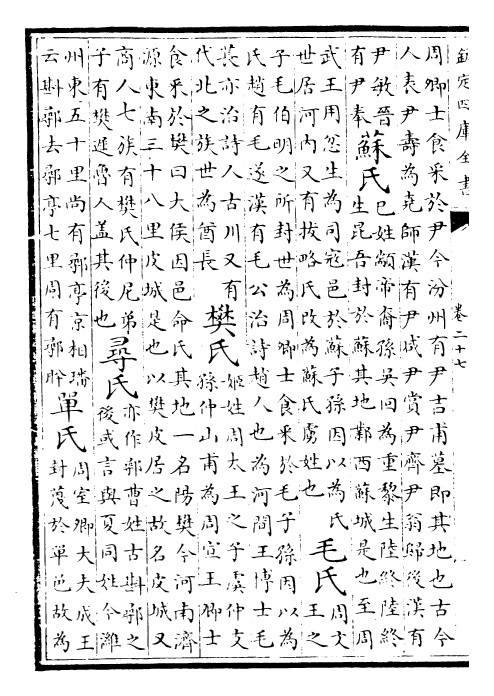 欽定四庫全書
卷二十七
周卿士食采於尹今汾州有尹吉甫墓即其地也古今
人表尹壽為堯師漢有尹咸尹賞尹齊尹翁歸後漢有
尹敏晉
有尹奉
蘇氏
已姓顓帝裔孫吳回為重黎生陸終陸終
生昆吾封於蘇其地鄴西蘇城是也至周
武王用忿生為司寇邑於蘇子孫因以為氏
世居河內又有拔略氏改為蘇氏虜姓也
毛氏
周文
王之
子毛伯明之所封世為周卿士食采於毛子孫因以為
氏趙有毛遂漢有毛公治詩趙人也為河間王博士毛
萇亦治詩人古川又有
代北之族世為酋長
樊氏
姬姓周太王之子虞仲支
孫仲山甫為周宣王卿士
食采於樊曰大侯因邑命氏其地一名陽樊今河南濟
源東南三十八里皮城是也以樊皮居之故名皮城又
商人七族有樊氏仲尼弟
子有樊遲魯人蓋其後也
尋氏
亦作鄩曹姓古斟鄩之
後或言與夏同姓今濰
州東五十里尚有鄩亭京相璠
云斟鄩去鄩亭七里周有鄩肸
單氏
周室卿大夫成王
封蔑於單邑故為